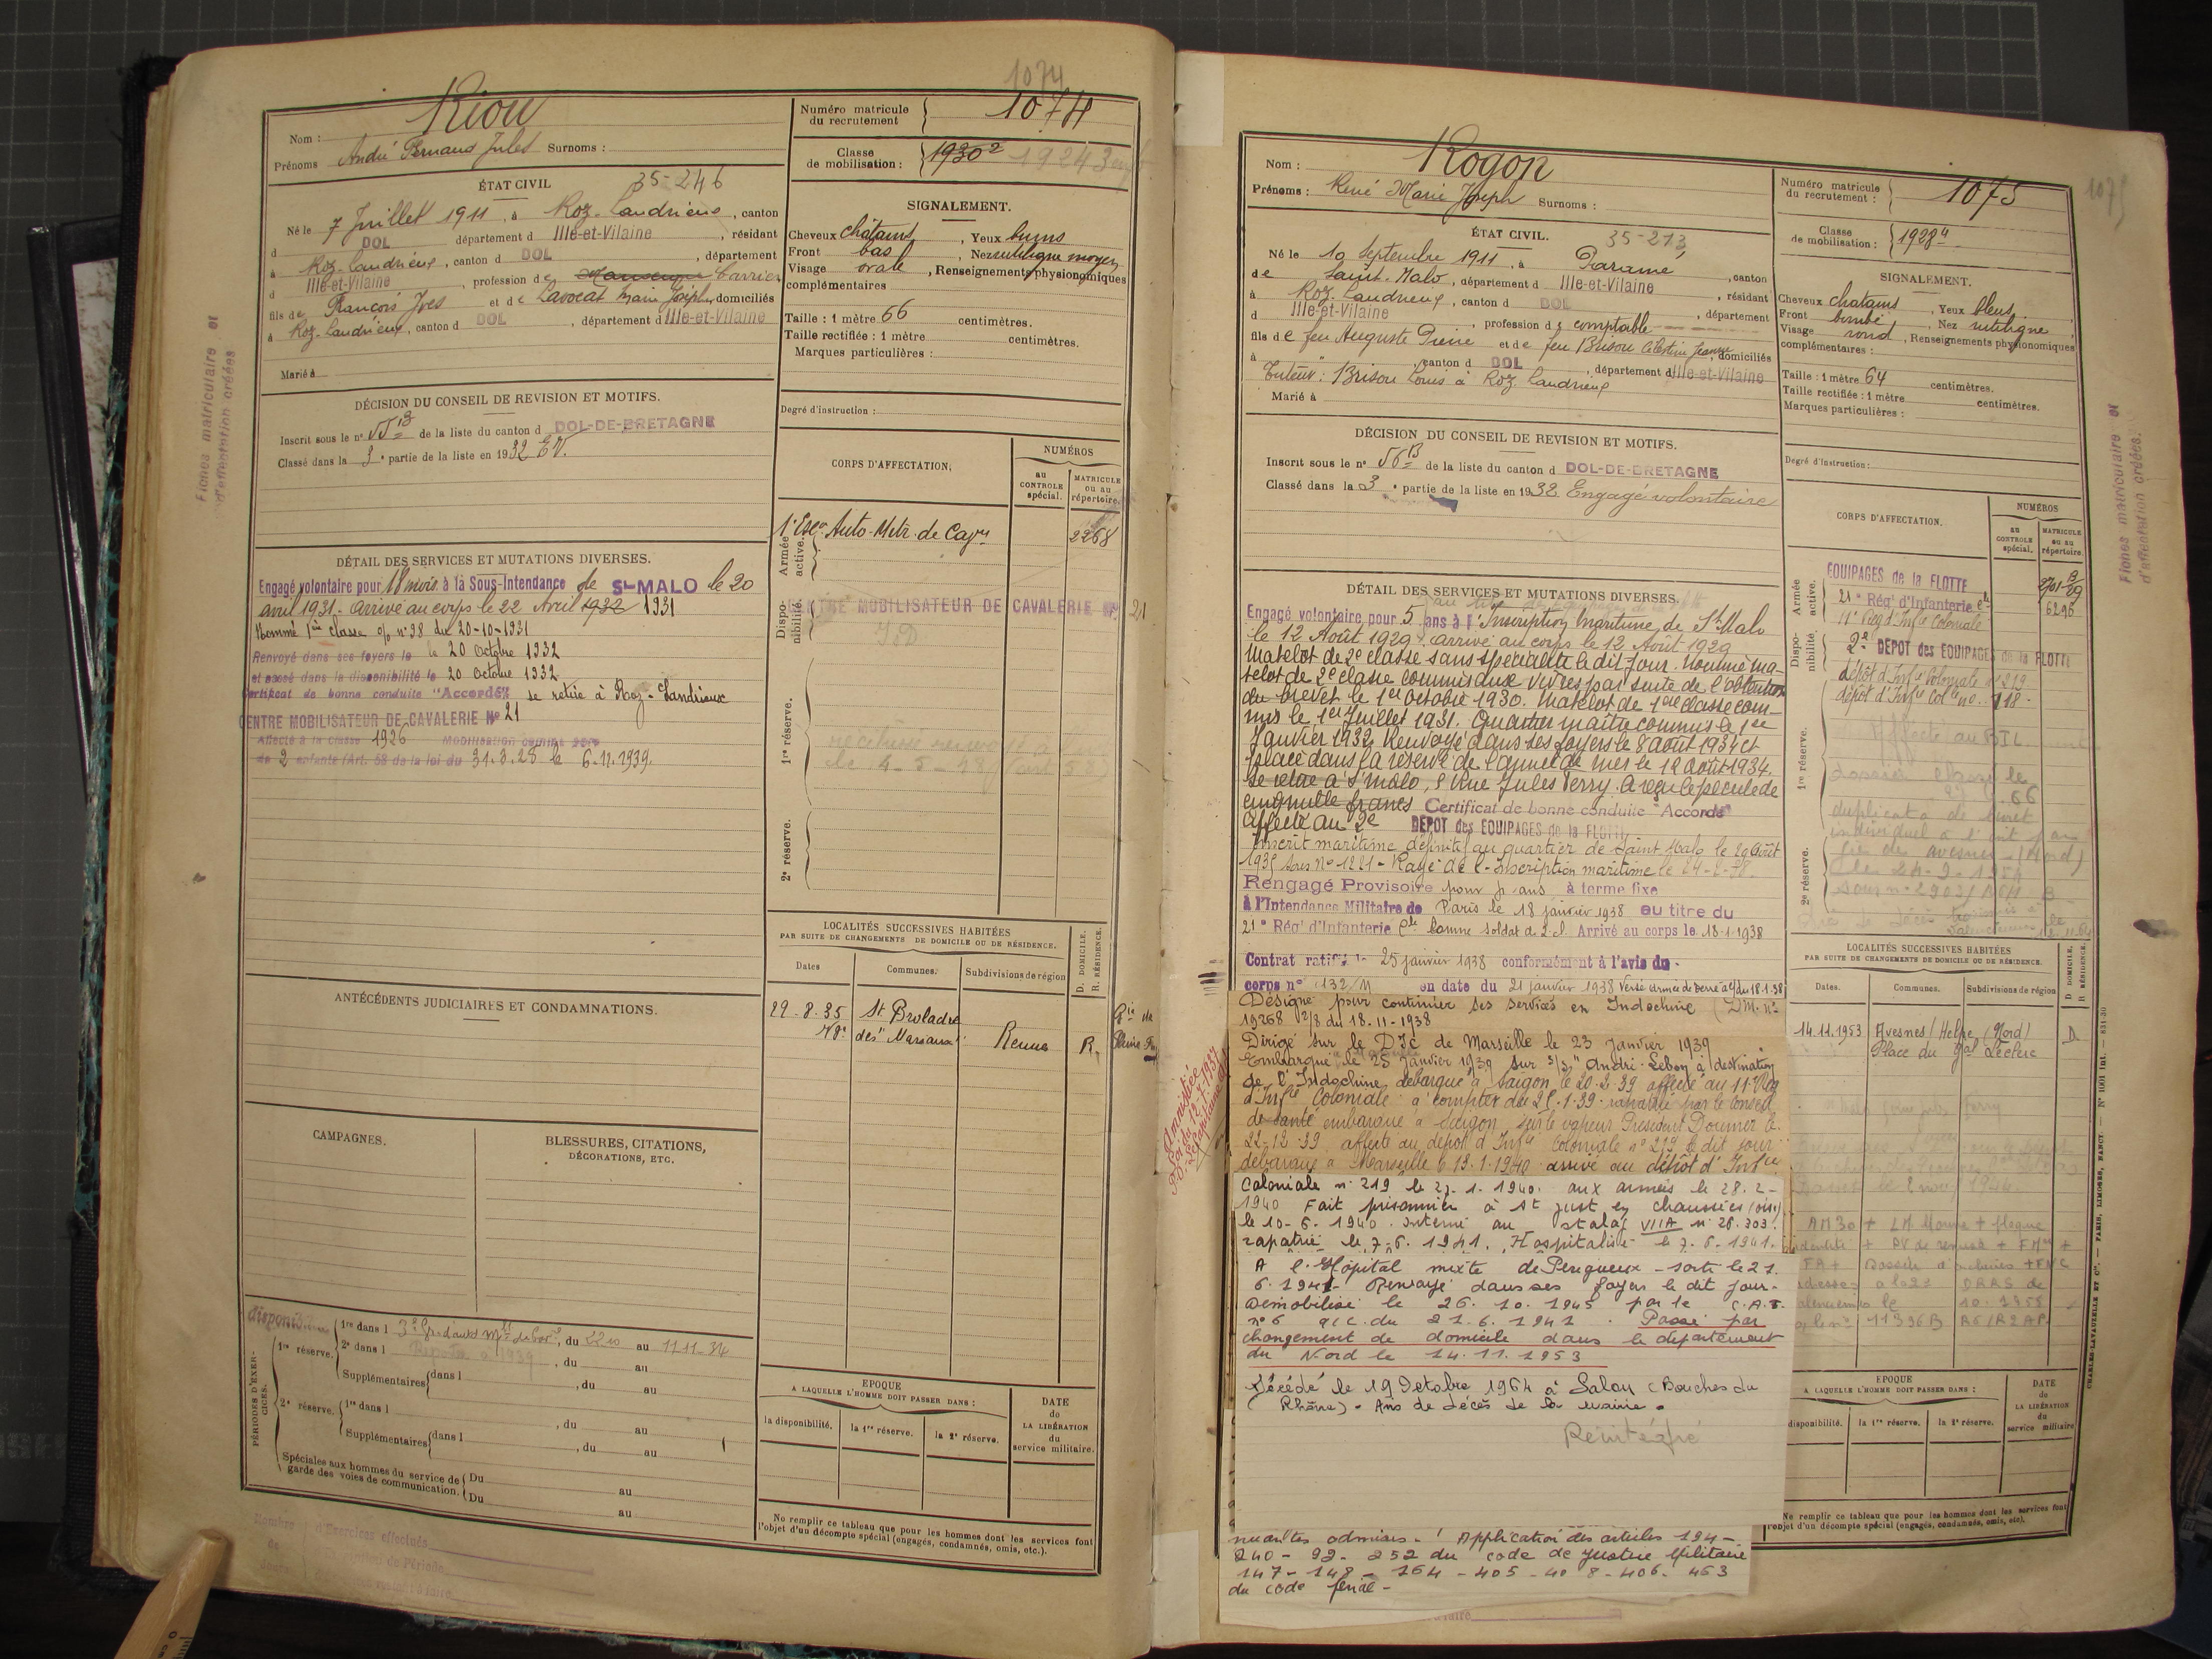 Fiches matriculaire et
d'affectation créées
1074
Nom : Riou
Prénoms André Fernand Jules Surnoms :
Numéro matricule
du recrutement
1074
Classe
de mobilisation :
1930² 1924
ÉTAT CIVIL
35-246
Né le 7 Juillet 1911, à Roz-Landrieux, canton
d DOL département d Ille-et-Vilaine, résidant
à Roz-Landrieux, canton d DOL, département
d Ille-et-Vilaine, profession de Carrier
fils de François Yves et de Lavocat Marie Joseph, domiciliés
à Roz-Landrieux, canton d DOL, département d Ille-et-Vilaine
Marié à
SIGNALEMENT.
Cheveux châtains, Yeux bruns
Front bas, Nez rectiligne moyen
Visage ovale, Renseignements physionomiques
complémentaires
Taille : 1 mètre 66 centimètres.
Taille rectifiée : 1 mètre centimètres.
Marques particulières :
Degré d'instruction :
DÉCISION DU CONSEIL DE REVISION ET MOTIFS.
Inscrit sous le n° 55 B de la liste du canton d DOL-DE-BRETAGNE
Classé dans la 3e partie de la liste en 1932 EV.
CORPS D'AFFECTATION.
NUMÉROS
au
CONTROLE
spécial.
MATRICULE
ou au
répertoire.
Armée
active.
1er Esc. Auto-Mitr. de Cavie
2268
Disponibilité.
CENTRE MOBILISATEUR DE CAVALERIE N° 21
1re réserve.
2e réserve.
DÉTAIL DES SERVICES ET MUTATIONS DIVERSES.
Engagé volontaire pour 18 mois à la Sous-Intendance de St-MALO le 20
avril 1931. Arrivé au corps le 22 Avril 1932 1931
Nommé 1ère classe o/o n° 98 du 20-10-1931
Renvoyé dans ses foyers le 20 Octobre 1932
et passé dans la disponibilité le 20 Octobre 1932
Certificat de bonne conduite "Accordé" se retire à Roz-Landrieux
CENTRE MOBILISATEUR DE CAVALERIE N° 21
Affecté à la classe 1926 Mobilisation comme père
de 2 enfants (Art. 58 de la loi du 31.3.28 le 6.11.1939.
ANTÉCÉDENTS JUDICIAIRES ET CONDAMNATIONS.
LOCALITÉS SUCCESSIVES HABITÉES
PAR SUITE DE CHANGEMENTS DE DOMICILE OU DE RÉSIDENCE.
D. DOMICILE.
R. RÉSIDENCE.
Dates
Communes.
Subdivisions de région
29-8-35 St Broladre
Rennes R.
CAMPAGNES.
BLESSURES, CITATIONS,
DÉCORATIONS, ETC.
PÉRIODES D'EXERCICES.
1re réserve.
1re dans l, du 22 10 au 11 11-34
2e dans l, du au
Supplémentaires dans l, du au
2e réserve.
1re dans l, du au
Supplémentaires dans l, du au
Spéciales aux hommes du service de
garde des voies de communication.
Du au
Du au
EPOQUE
A LAQUELLE L'HOMME DOIT PASSER DANS :
la disponibilité.
la 1re réserve.
la 2e réserve.
DATE
de
LA LIBÉRATION
du
service militaire.
Ne remplir ce tableau que pour les hommes dont les services font
l'objet d'un décompte spécial (engagés, condamnés, omis, etc.).
Nombre d'Exercices effectués
Nom : Rogon
Prénoms : René Marie Joseph Surnoms :
Numéro matricule
du recrutement :
1075
1075
Classe
de mobilisation :
1928
ÉTAT CIVIL.
35-213
Né le 10 Septembre 1911, à Paramé, canton
de Saint-Malo, département d Ille-et-Vilaine, résidant
à Roz-Landrieux, canton d DOL, département
d Ille-et-Vilaine, profession de comptable
fils de feu Auguste Pierre et de feu Brisou Célestine Jeanne, domiciliés
à, canton d DOL, département d Ille-et-Vilaine
Tuteur : Brisou Louis à Roz Landrieux
Marié à
SIGNALEMENT.
Cheveux chatains, Yeux bleus
Front bombé, Nez rectiligne
Visage rond, Renseignements physionomiques
complémentaires :
Taille : 1 mètre 64 centimètres.
Taille rectifiée : 1 mètre centimètres.
Marques particulières :
Degré d'instruction :
Fiches matriculaire et
d'affectation créées.
DÉCISION DU CONSEIL DE REVISION ET MOTIFS.
Inscrit sous le n° 56 B de la liste du canton d DOL-DE-BRETAGNE
Classé dans la 3e partie de la liste en 1932 Engagé volontaire
CORPS D'AFFECTATION.
NUMÉROS
au
CONTROLE
spécial.
MATRICULE
ou au
répertoire.
Armée
active.
EQUIPAGES de la FLOTTE
21e Rég' d'Infanterie Cle
6296
11e Rég d'Infie Coloniale
Disponibilité.
2e DEPOT des EQUIPAGES de la FLOTTE
dépôt d'Infie Coloniale n° 219
dépôt d'Infie Colle n° 118
1re réserve.
Affecté au BIL
duplicata de livret
individuel
2e réserve.
DÉTAIL DES SERVICES ET MUTATIONS DIVERSES.
Engagé volontaire pour 5 ans à l'Inscription Maritime de St Malo
le 12 Août 1929. Arrivé au corps le 12 Août 1929
Matelot de 2e classe sans spécialité le dit jour. Nommé ma-
telot de 2e classe commis aux vivres par suite de l'obtention
du brevet le 1er Octobre 1930. Matelot de 1ère classe com-
mis le 1er Juillet 1931. Quartier maître commis le 1er
Janvier 1932. Renvoyé dans ses foyers le 8 août 1934 et
placé dans la réserve de l'armée de mer le 12 août 1934.
Se retire à St Malo, 5 Rue Jules Ferry. A reçu le pécule de
cinq mille francs Certificat de bonne conduite "Accordé"
Affecté au 2e DEPOT des EQUIPAGES de la FLOTTE
Inscrit maritime définitif au quartier de Saint Malo le 29 Août
1935 sous n° 1221 - Rayé de l'Inscription maritime le
Rengagé Provisoire pour ans à terme fixe
à l'Intendance Militaire de Paris le 18 janvier 1938 au titre du
21e Rég' d'Infanterie Cle comme soldat de 2e cl. Arrivé au corps le 18-1-1938
Contrat ratifié le 25 janvier 1938 conformément à l'avis du
corps n° 132/M en date du 21 janvier 1938 Versé armée de terre
Désigné pour continuer ses services en Indochine (D.M. n°
19268 2/8 du 18-11-1938
Dirigé sur le DIC de Marseille le 23 Janvier 1939
Embarqué le 25 Janvier 1939 sur s/s "André Lebon" à destination
de l'Indochine, débarqué à Saigon le 20.2.39 affecté au 11e Rég
d'Infie Coloniale à compter du 25.1.39 rapatrié par le conseil
de santé embarqué à Saigon sur le vapeur Président Doumer le
22-12-39 affecté au dépôt d'Infie Coloniale n° 219 le dit jour
débarqué à Marseille le 19.1.1940 arrivé au dépôt d'Infie
Coloniale n° 219 le 21.1.1940. aux armées le 28.2-
1940 Fait prisonnier à St Just en chaussée (Oise)
le 10-6-1940. Interné au stalag VIIA n° 26.303.
rapatrié le 7-6-1941. Hospitalisé le 7-6-1941.
A l'Hôpital mixte de Périgueux - sorti le 27.
6.1941. Renvoyé dans ses foyers le dit jour.
Démobilisé le 26.10.1945 par le C.A.T.
n° 6 a/c du 21.6.1941. Passé par
changement de domicile dans le département
du Nord le 14.11.1953
Décédé le 19 Octobre 1964 à Salon (Bouches du
Rhône). Avis de décès de la mairie.
Réintégré
nuantes admises. Application des articles 194-
240 - 92 - 252 du code de justice Militaire
147 - 148 - 164 - 405 - 408 - 406 - 463
du code pénal -
Amnistié
Loi du 12-7-1937
Le capitaine
LOCALITÉS SUCCESSIVES HABITÉES
PAR SUITE DE CHANGEMENTS DE DOMICILE OU DE RÉSIDENCE.
D. DOMICILE.
R. RÉSIDENCE.
Dates.
Communes.
Subdivisions de région
14.11.1953 Avesnes/Helpe (Nord) D
Place du Gal Leclerc
EPOQUE
A LAQUELLE L'HOMME DOIT PASSER DANS :
disponibilité.
la 1re réserve.
la 2e réserve.
DATE
de
LA LIBÉRATION
du
service militaire
Ne remplir ce tableau que pour les hommes dont les services font
l'objet d'un décompte spécial (engagés, condamnés, omis, etc).
CHARLES-LAVAUZELLE ET Cie. — PARIS, LIMOGES, NANCY. — N° 1001 Int. — 831-30